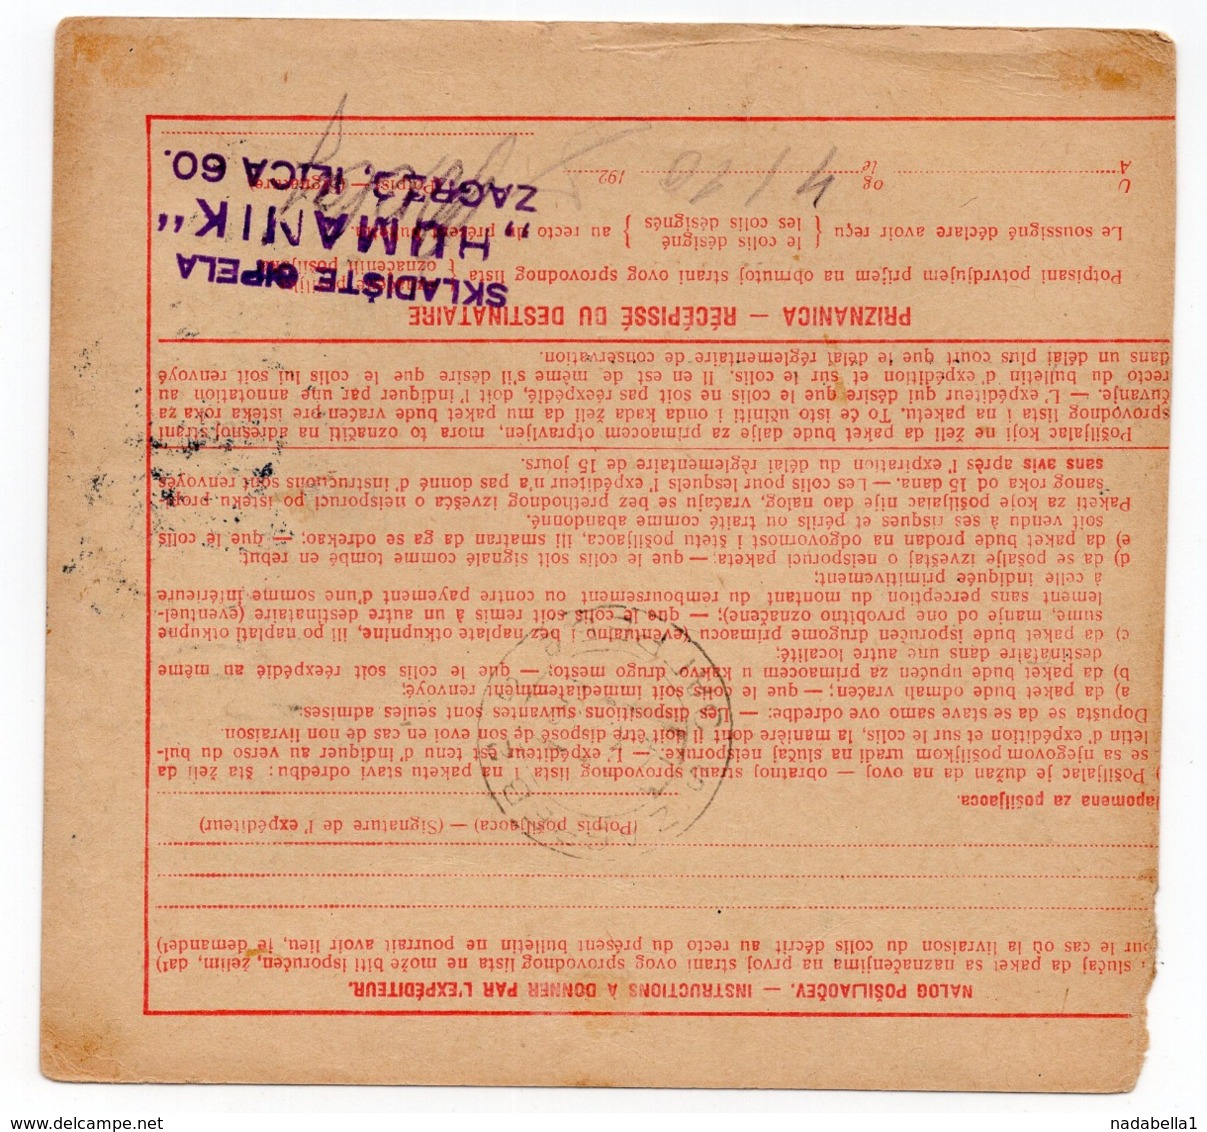 NALOG POŠILJAOČEV. — INSTRUCTIONS À DONNER PAR L'EXPÉDITEUR.
slučaj da paket sa naznačenjima na prvoj strani ovog sprovodnog lista ne može biti isporučen, želim, da¹)
our le cas où la livraison du colis décrit au recto du présent bulletin ne pourrait avoir lieu, je demande¹)
(Potpis pošiljaoca) — (Signature de l'expéditeur)
Napomena za pošiljaoca.
) Pošiljalac je dužan da na ovoj — obratnoj strani sprovodnog lista i na paketu stavi odredbu: šta želi da
se sa njegovom pošiljkom uradi na slučaj neisporuke. — L'expéditeur est tenu d'indiquer au verso du bul-
letin d'expédition et sur le colis, la manière dont il doit être disposé de son evoi en cas de non livraison.
Dopušta se da se stave samo ove odredbe: — Les dispositions suivantes sont seules admises:
a) da paket bude odmah vraćen; — que le colis soit immédiatement renvoyé;
b) da paket bude upućen za primaocem u kakvo drugo mesto; — que le colis soit réexpédié au même
destinataire dans une autre localité;
c) da paket bude isporučen drugome primaocu (eventualno i bez naplate otkupnine, ili po naplati otkupne
sume, manje od one prvobitno označene); — que le colis soit remis à un autre destinataire (éventuel-
lement sans perception du montant du remboursement ou contre payement d'une somme inférieure
à celle indiquée primitivement;
d) da se pošalje izveštaj o neisporuci paketa; — que le colis soit signalé comme tombé en rebut;
e) da paket bude prodan na odgovornost i štetu pošiljaoca, ili smatran da ga se odrekao; — que le colis
soit vendu à ses risques et périls ou traité comme abandonné.
Paketi za koje pošiljalac nije dao nalog, vraćaju se bez prethodnog izvešća o neisporuci po isteku propi-
sanog roka od 15 dana. — Les colis pour lesquels l'expéditeur n'a pas donné d'instructions sont renvoyés
sans avis après l'expiration du délai règlementaire de 15 jours.
Pošiljalac koji ne želi da paket bude dalje za primaocem otpravljen, mora to označiti na adresnoj strani
sprovodnog lista i na paketu. To će isto učiniti i onda kada želi da mu paket bude vraćen pre isteka roka za
čuvanje. — L'expéditeur qui désire que le colis ne soit pas réexpédié, doit l'indiquer par une annotation au
recto du bulletin d'expédition et sur le colis. Il en est de même s'il désire que le colis lui soit renvoyé
dans un délai plus court que le délai réglementaire de conservation.
PRIZNANICA — RÉCÉPISSÉ DU DESTINATAIRE
Potpisani potvrdjujem prijem na obrnutoj strani ovog sprovodnog lista { označenih pošiljaka
Le soussigné déclare avoir reçu { le colis désigné
les colis désignés } au recto du présent bulletin.
U
A
og
le
4/10
192
(Potpis) — (Signature)
SKLADIŠTE CIPELA
„HUMANIK"
ZAGREB, ILICA 60.
nadabella1